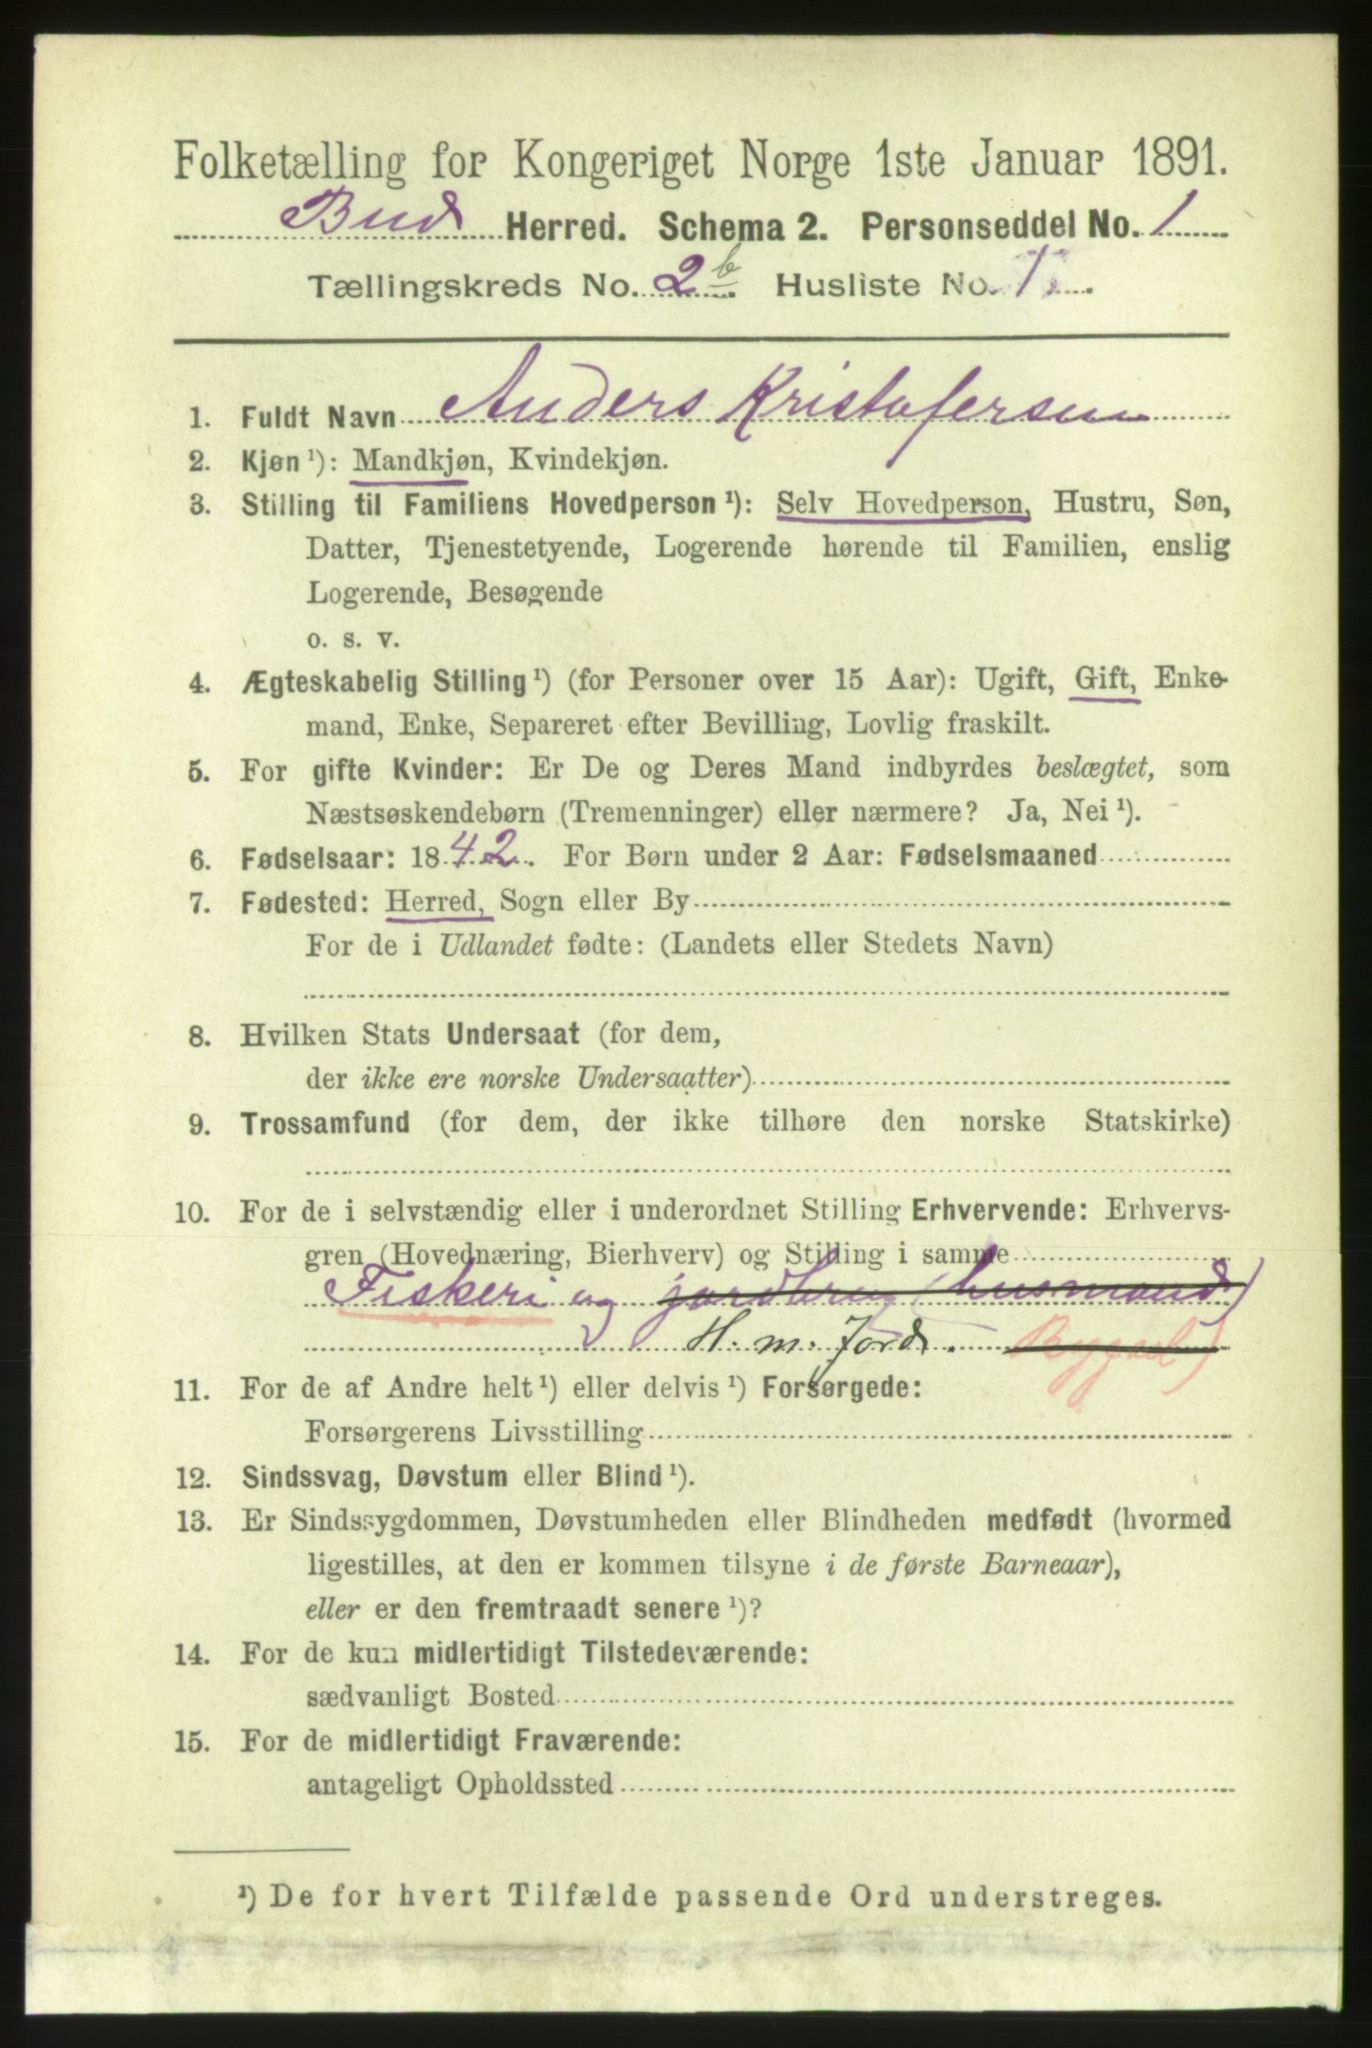 Folketælling for Kongeriget Norge 1ste Januar 1891.
Bud Herred. Schema 2. Personseddel No. 1
Tællingskreds No. 2b. Husliste No. 1.
1. Fuldt Navn Anders Kristofersen
2. Kjøn ¹): Mandkjøn, Kvindekjøn.
3. Stilling til Familiens Hovedperson ¹): Selv Hovedperson, Hustru, Søn,
Datter, Tjenestetyende, Logerende hørende til Familien, enslig
Logerende, Besøgende
o. s. v.
4. Ægteskabelig Stilling ¹) (for Personer over 15 Aar): Ugift, Gift, Enke-
mand, Enke, Separeret efter Bevilling, Lovlig fraskilt.
5. For gifte Kvinder: Er De og Deres Mand indbyrdes beslægtet, som
Næstsøskendebørn (Tremenninger) eller nærmere? Ja, Nei ¹).
6. Fødselsaar: 1842. For Børn under 2 Aar: Fødselsmaaned
7. Fødested: Herred, Sogn eller By
For de i Udlandet fødte: (Landets eller Stedets Navn)
8. Hvilken Stats Undersaat (for dem,
der ikke ere norske Undersaatter)
9. Trossamfund (for dem, der ikke tilhøre den norske Statskirke)
10. For de i selvstændig eller i underordnet Stilling Erhvervende: Erhvervs-
gren (Hovednæring, Bierhverv) og Stilling i samme
Fiskeri og jordbrug (husmand)
H. m. Jord. Bygsel)
11. For de af Andre helt ¹) eller delvis ¹) Forsørgede:
Forsørgerens Livsstilling
12. Sindssvag, Døvstum eller Blind ¹).
13. Er Sindssygdommen, Døvstumheden eller Blindheden medfødt (hvormed
ligestilles, at den er kommen tilsyne i de første Barneaar),
eller er den fremtraadt senere ¹)?
14. For de kun midlertidigt Tilstedeværende:
sædvanligt Bosted
15. For de midlertidigt Fraværende:
antageligt Opholdssted
¹) De for hvert Tilfælde passende Ord understreges.